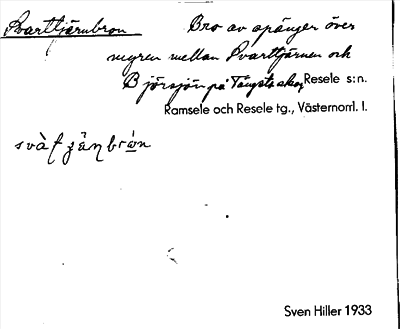 Svarttjärnbron Bro av spänger över
myren mellan Svarttjärnen och
Björsjön på Tängsta skog Resele s:n.
Ramsele och Resele tg., Västernorrl. l.
Sven Hiller 1933